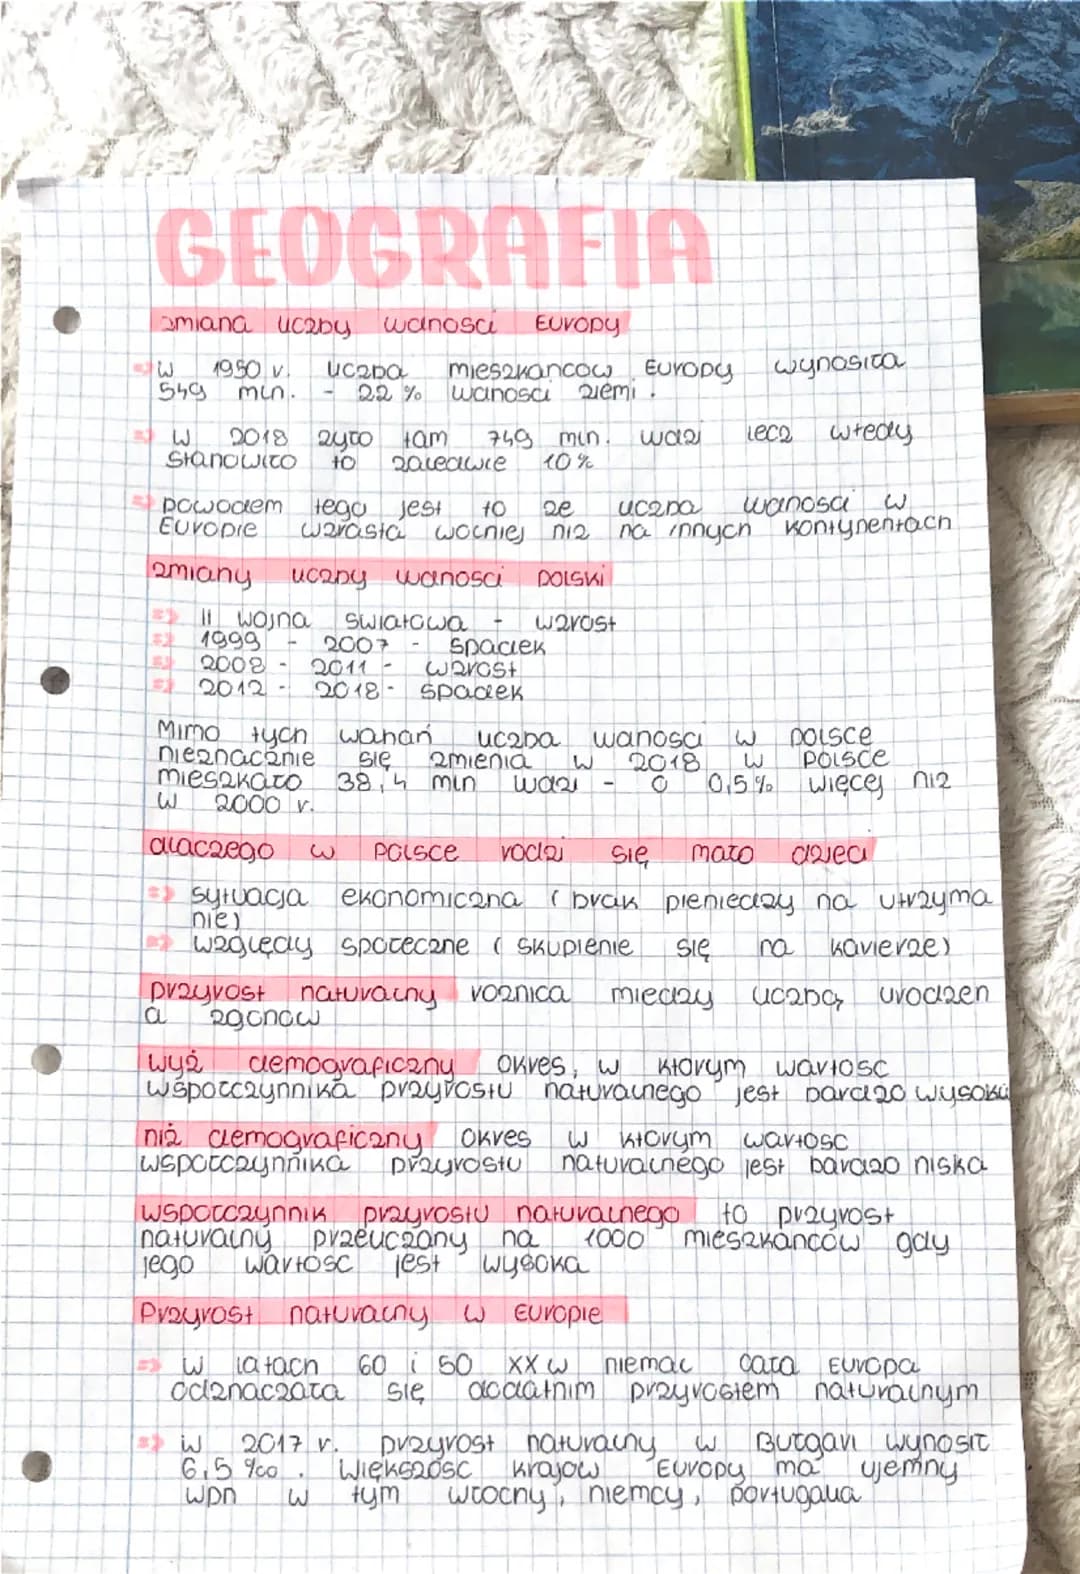 GEOGRAFIA
zmiana liczby ludności Europy
⇒ W 1950 r. liczba mieszkańców Europy wynosiła
549 mln. - 22 % ludności ziemi.
⇒ W 2018 żyło tam 749 mln. ludzi lecz wtedy
stanowiło to zaledwie 10%
⇒ powodem tego jest to że liczba ludności w
Europie wzrasta wolniej niż na innych kontynentach
zmiany liczby ludności polski
⇒ II wojna światowa - wzrost
⇒ 1999 - 2007 - spadek
⇒ 2008 - 2011 - wzrost
⇒ 2012 - 2018 - spadek
Mimo tych wahań liczba ludności w polsce
nieznacznie się zmienia w 2018 w Polsce
mieszkało 38,4 mln ludzi - o 0,5% więcej niż
w 2000 r.
dlaczego w polsce rodzi się mało dzieci
⇒ sytuacja ekonomiczna ( brak pieniędzy na utrzyma
nie)
⇒ względy społeczne ( skupienie się na karierze)
przyrost naturalny róznica miedzy liczbą urodzen
a zgonów
wyż demograficzny okres, w którym wartosc
współczynnika przyrostu naturalnego jest bardzo wysoka
niż demograficzny okres w którym wartosc
współczynnika przyrostu naturalnego jest bardzo niska
współczynnik przyrostu naturalnego to przyrost
naturalny przeliczony na 1000 mieszkańców gdy
jego wartosc jest wysoka
Przyrost naturalny w Europie
⇒ w latach 60 i 50 XX w niemal cała Europa
odznaczała się dodatnim przyrostem naturalnym
⇒ w 2017 r. przyrost naturalny w Bułgari wynosił
6,5 ‰. Większosc krajow Europy ma ujemny
wpn w tym włochy, niemcy, portugalia